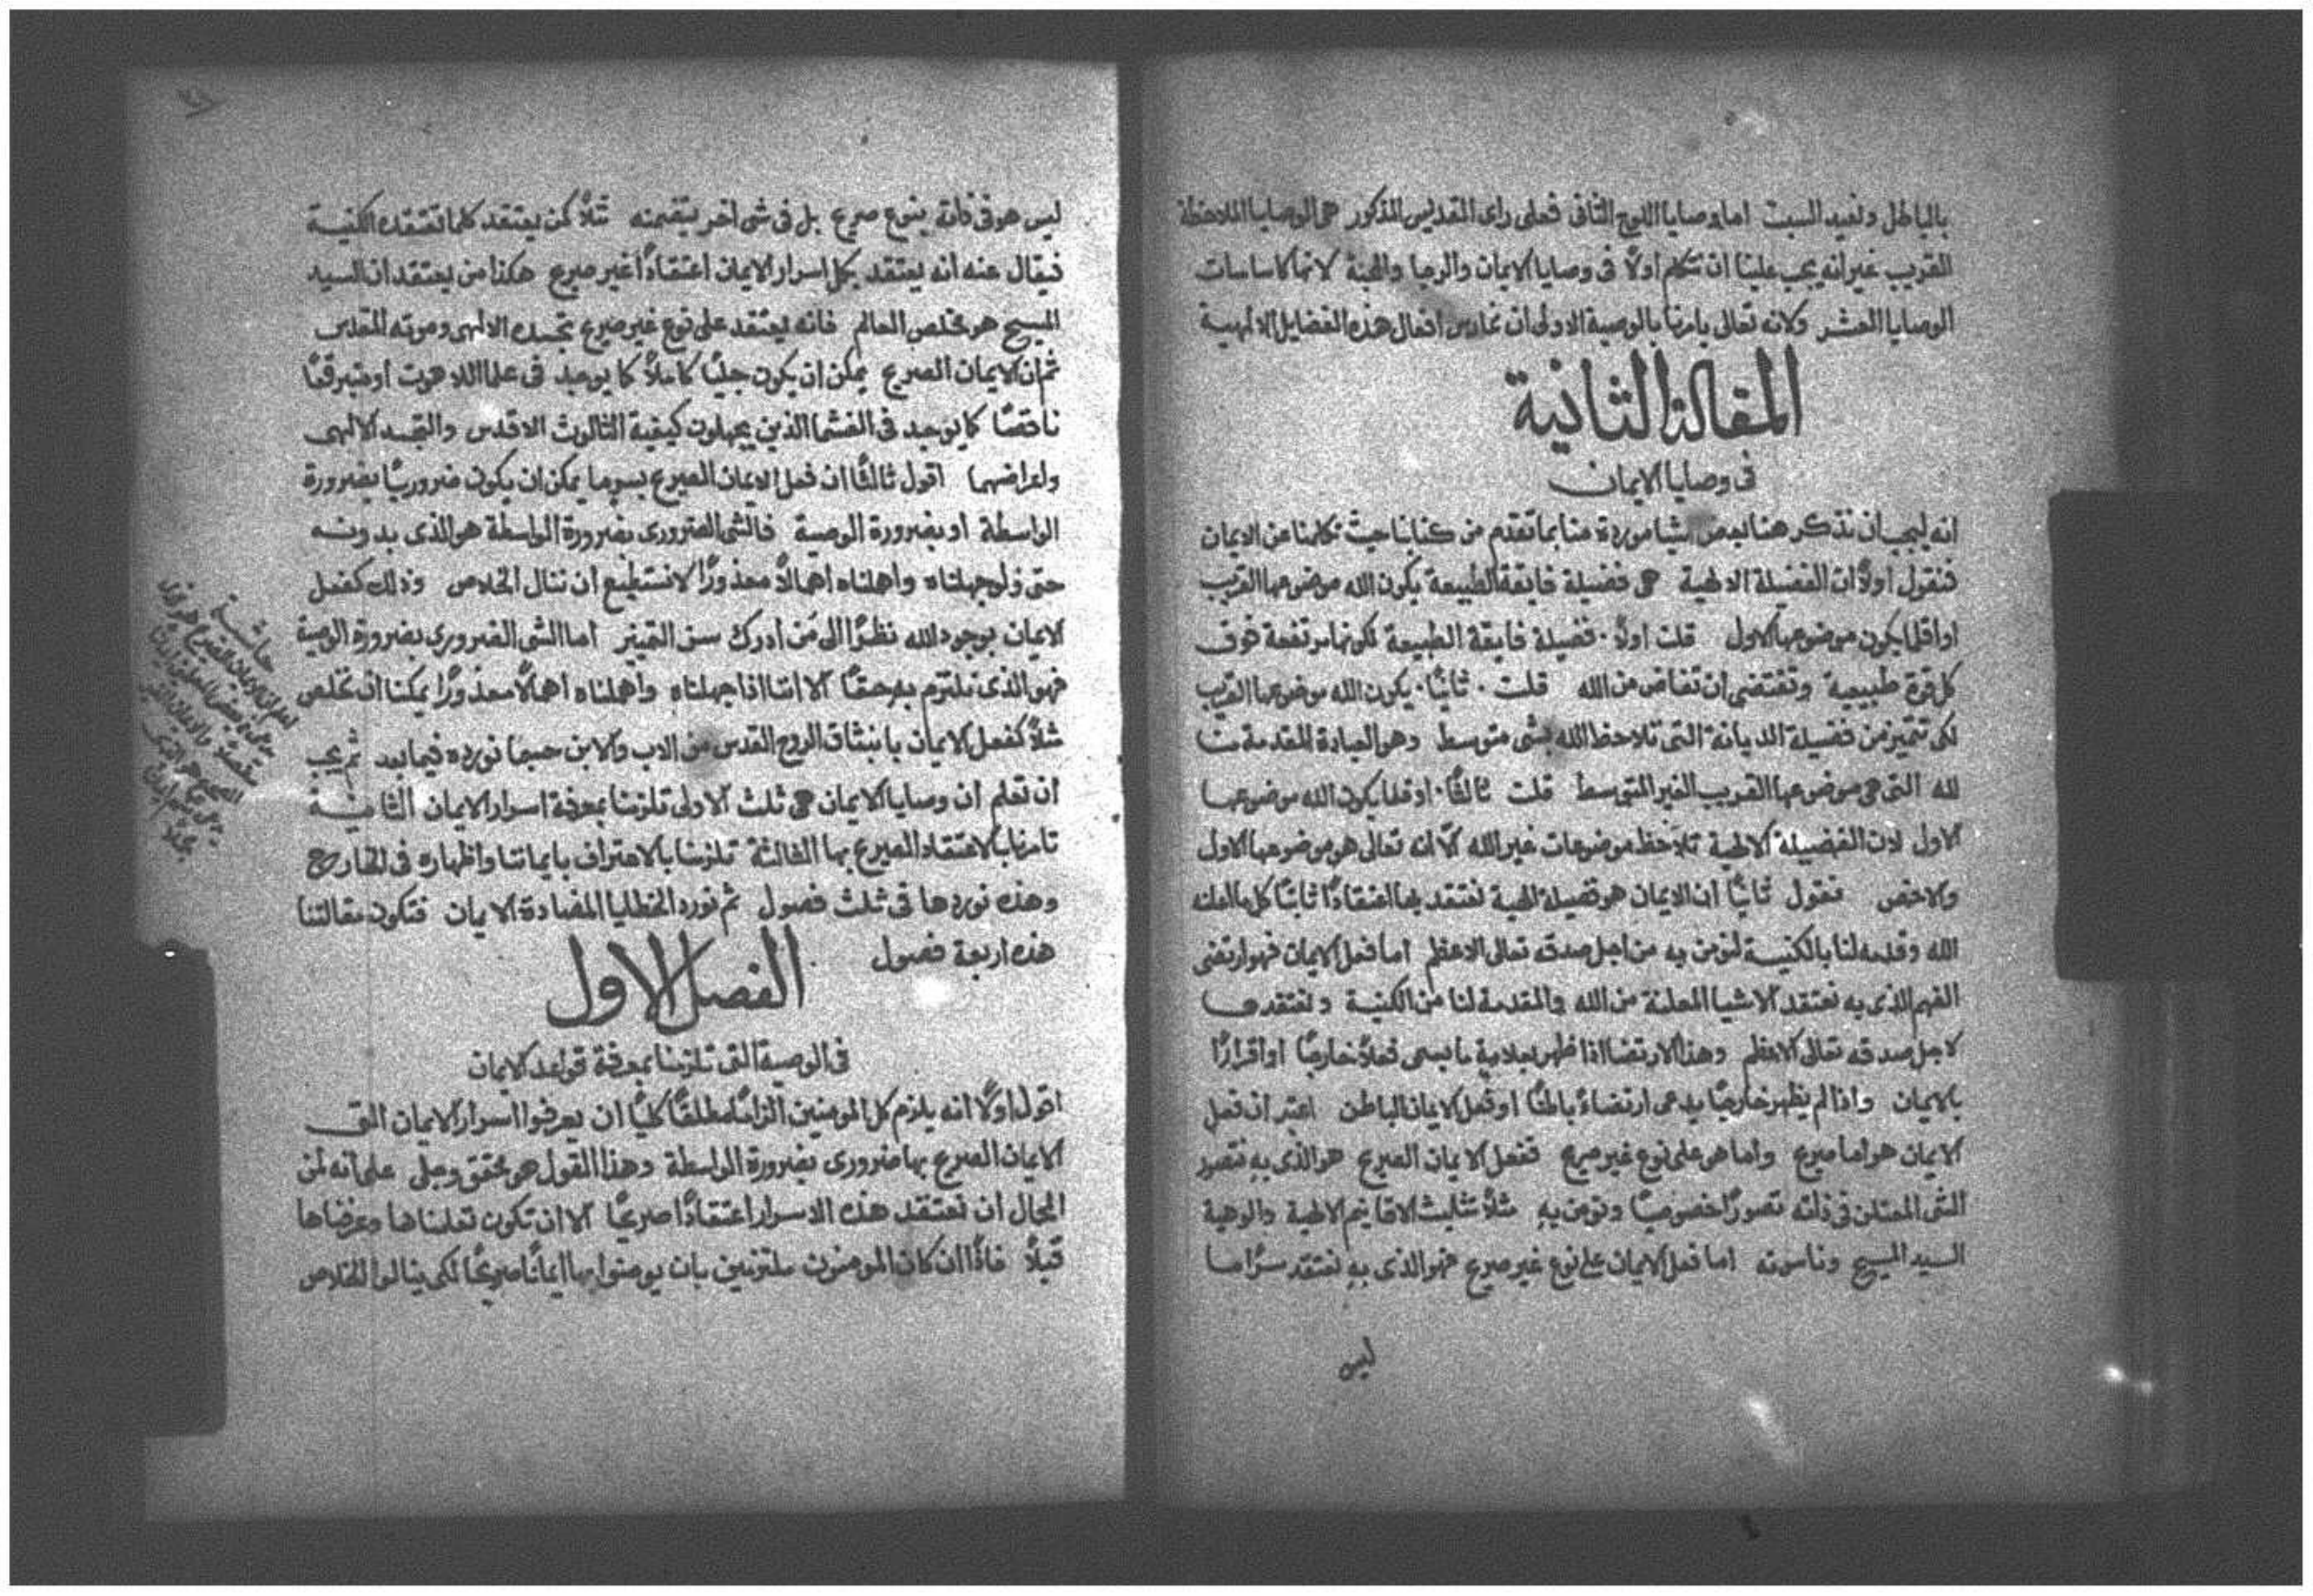 بالباطل ونعيد السبت اما وصايا اللوح الثاني فعلى راى القديس المذكور هى الوصايا الملاحظة
القريب غير انه يجب علينا ان نتكلم اولًا فى وصايا الايمان والرجا والمحبة لانها كاساسات
الوصايا العشر ولانه تعالى يامرنا بالوصية الاولى ان نمارس افعال هذه الفضايل الالهية
المقالة الثانية
فى وصايا الايمان
انه ليجب ان نذكر هنا بعض اشيا موردة منا بما تقدم من كتابنا حيث تكلمنا عن الايمان
فنقول اولًا ان الفضيلة الالهية هى فضيلة فايقة الطبيعة يكون الله موضوعها القريب
او اقلما يكون موضوعها الاول قلت اولًا فضيلة فايقة الطبيعة لكونها مرتفعة فوق
كل قوة طبيعية وتقتضى ان تفاض من الله قلت ثانيًا يكون الله موضوعها القريب
لكى تتميز من فضيلة الديانة التى تلاحظ الله بشى متوسط وهو العبادة المقدمة منا
لله التى هى موضوعها القريب الغير المتوسط قلت ثالثًا او اقلما يكون الله موضوعها
الاول لان الفضيلة الالهية تلاحظ موضوعات غير الله الّا انه تعالى هو موضوعها الاول
والاخص فنقول ثانيًا ان الايمان هو فضيلة الهية نعتقد بها اعتقادًا ثابتًا كل ما اعلنه
الله وقدمه لنا بالكنيسة لنومن به من اجل صدقه تعالى الاعظم اما فعل الايمان فهو ارتضى
الفهم الذى به نعتقد الاشيا المعلنة من الله والمقدمة لنا من الكنيسة ونعتقدها
لاجل صدقه تعالى الاعظم وهذا الارتضا اذا ظهر بعلامة ما يسمى فعلًا خارجًا او اقرارًا
بالايمان واذا لم يظهر خارجًا يدعى ارتضاءً باطنًا او فعل الايمان الباطن اعتبر ان فعل
الايمان هو اما صريح واما هو على نوع غير صريح ففعل الايمان الصريح هو الذى به نتصور
الشى المعتلن فى ذاته تصورًا خصوصيًا ونومن به مثلًا تثليث الاقانيم الالهية والوهية
السيد المسيح وناسوته اما فعل الايمان على نوع غير صريح فهو الذى به نعتقد سرًا ما
ليس
ليس هو فى ذاته بنوع صريح بل فى شى اخر يتضمنه مثلًا كمن يعتقد كلما تعتقده الكنيسة
فيقال عنه انه يعتقد بكل اسرار الايمان اعتقادًا غير صريح هكذا من يعتقد ان السيد
المسيح هو مخلص العالم فانه يعتقد على نوع غير صريح بتجسده الالهى وموته المقدس
ثم ان الايمان الصريح يمكن ان يكون جليًا كاملًا كما يوجد فى علما اللاهوت او
ناقصًا كما يوجد فى الغشما الذين يجهلون كيفية الثالوث الاقدس والتجسد الالهى
واعراضهما اقول ثالثًا ان فعل الايمان الصريح بسر ما يمكن ان يكون ضروريًا بضرورة
الواسطة او بضرورة الوصية فالشى الضرورى بضرورة الواسطة هو الذى بدونه
حتى ولو جهلناه واهملناه اهمالًا معذورًا لا نستطيع ان ننال الخلاص وذلك كفعل
الايمان بوجود الله نظرًا الى مَن ادرك سن التمييز اما الشى الضرورى بضرورة الوصية
فهو الذى نلتزم به حقًا الا اننا اذا جهلناه واهملناه اهمالًا معذورًا يمكنا ان نخلص
مثلًا كفعل الايمان بانبثاق الروح القدس من الاب والابن حسبما نورده فيما بعد ثم يجب
ان تعلم ان وصايا الايمان هى ثلث الاولى تلزمنا بمعرفة اسرار الايمان الثانية
تامرنا بالاعتقاد الصريح بها الثالثة تلزمنا بالاعتراف بايماننا واظهاره فى الخارج
وهذه نوردها فى ثلث فصول ثم نورد الخطايا المضادة الايمان فتكون مقالتنا
هذه اربعة فصول
الفصل الاول
فى الوصية التى تلزمنا بمعرفة قواعد الايمان
اقول اولًا انه يلزم كل المومنين الزامًا مطلقًا كليًا ان يعرفوا اسرار الايمان التى
الايمان الصريح بها ضرورى بضرورة الواسطة وهذا القول هو محقق وجلى على انه لمن
المحال ان نعتقد هذه الاسرار اعتقادًا صريحًا الا ان تكون تعلمناها وعرفناها
قبلًا فاذًا ان كان المومنون ملتزمين بان يومنوا بها ايمانًا صريحًا لكى ينالوا الخلاص
حاشية